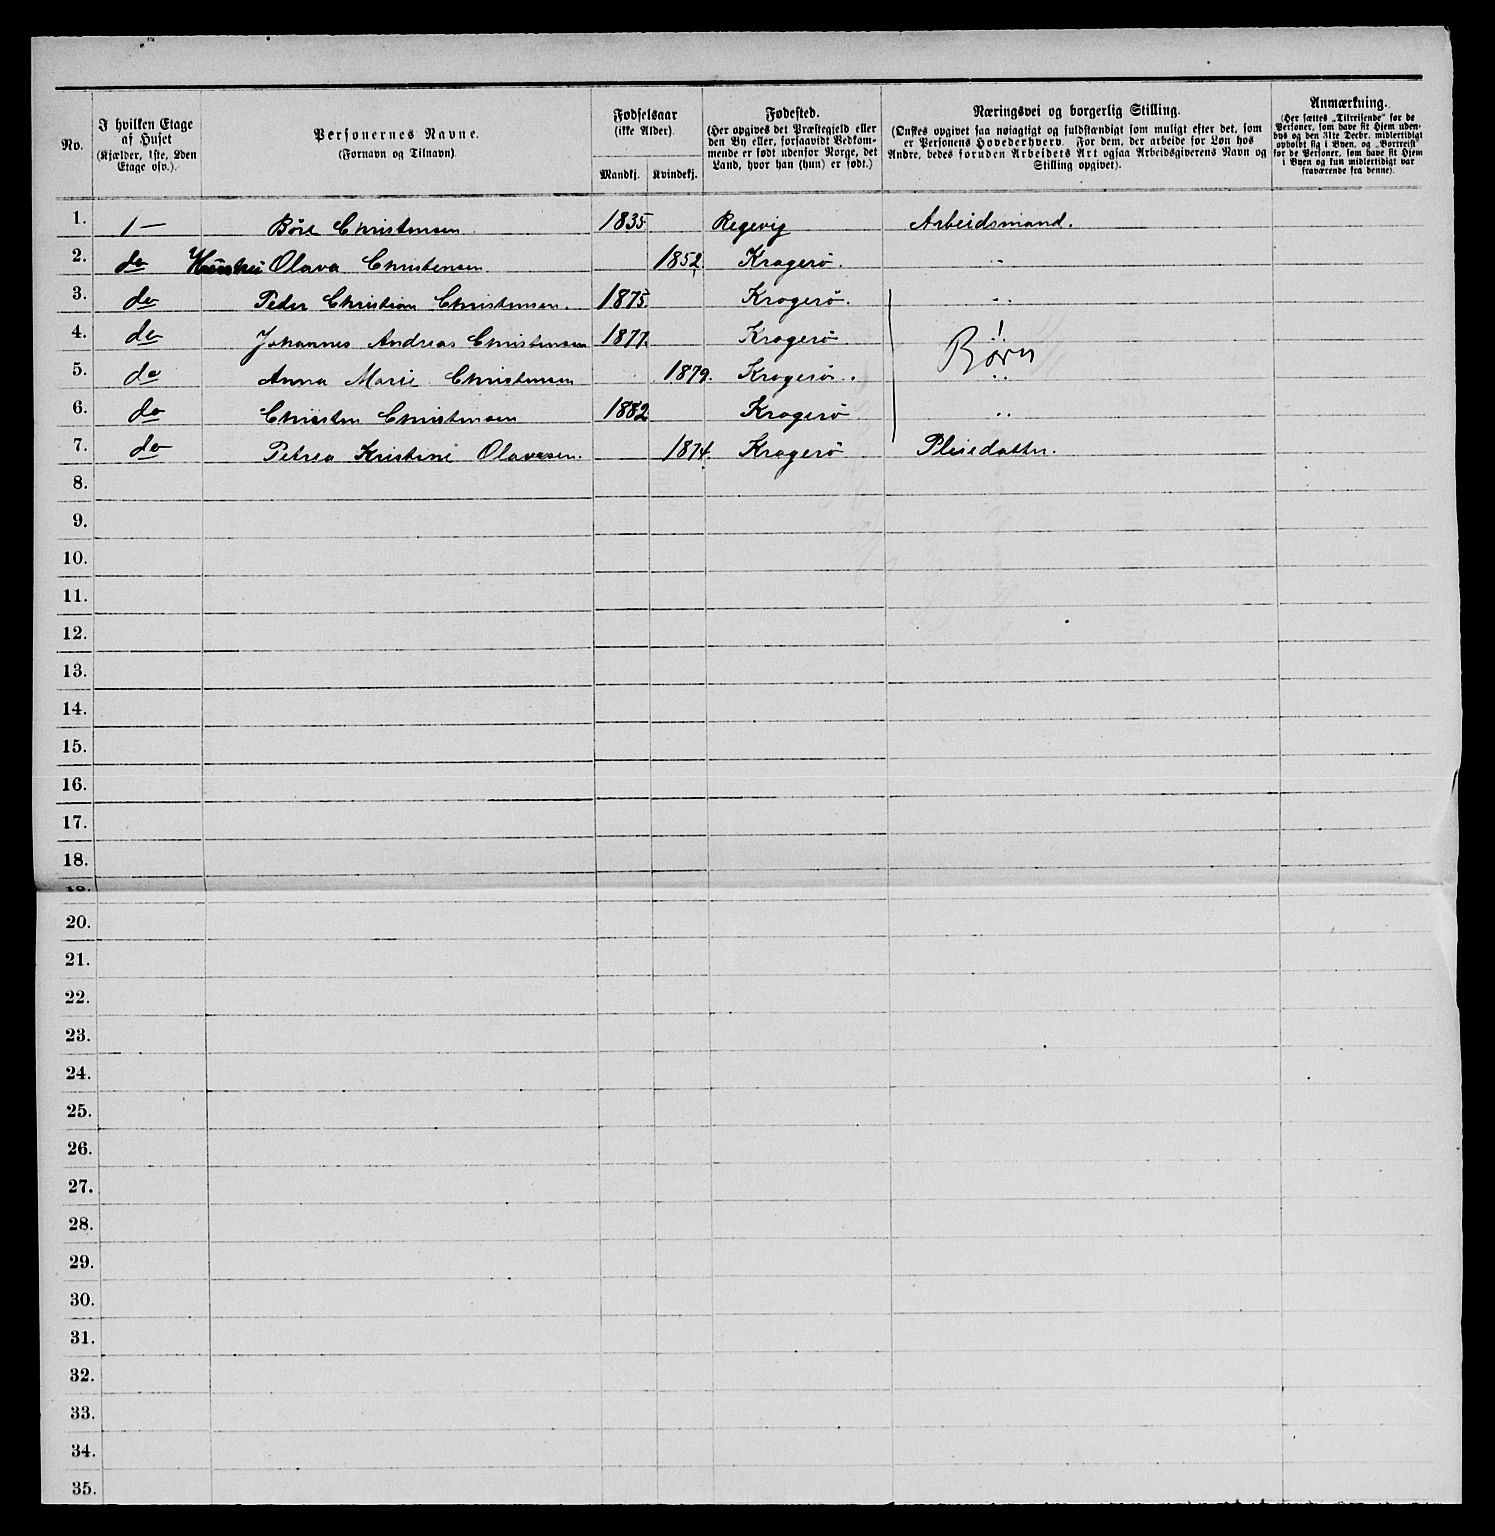 No.
I hvilken Etage
af Huset
(Kjælder, 1ste, 2den
Etage osv.).
Personernes Navne.
(Fornavn og Tilnavn)
Fødselsaar
(ikke Alder).
Mandkj. Kvindekj.
Fødested.
(Her opgives det Præstegjeld eller
den By eller, forsaavidt Vedkom-
mende er født udenfor Norge, det
Land, hvor han (hun) er født.)
Næringsvei og borgerlig Stilling.
(Ønskes opgivet saa nøiagtigt og fuldstændigt som muligt efter det, som
er Personens Hovederhverv. For dem, der arbeide for Løn hos
Andre, bedes foruden Arbeidets Art ogsaa Arbeidsgiverens Navn og
Stilling opgivet).
Anmærkning.
(Her sættes „Tilreisende" for de
Personer, som have sit Hjem uden-
bys og den 31te Decbr. midlertidigt
opholdt sig i Byen, og „Bortreist"
for de Personer, som have sit Hjem
i Byen og kun midlertidigt var
fraværende fra denne).
1. 1 — Böre Christensen 1835 Regevig Arbeidsmand.
2. do Hustru Olava Christensen 1852. Kragerö. -"-
3. do Peder Christian Christensen. 1875. Kragerö. -"-
4. do Johannes Andreas Christensen 1877. Kragerö
Børn
5. do Anna Marie Christensen 1879. Kragerö. "
6. do Christen Christensen 1882 Kragerö "
7. do Petrea Kristine Olavesen. 1874. Kragerö Pleiedatter.
8.
9.
10.
11.
12.
13.
14.
15.
16.
17.
18.
19.
20.
21.
22.
23.
24.
25.
26.
27.
28.
29.
30.
31.
32.
33.
34.
35.